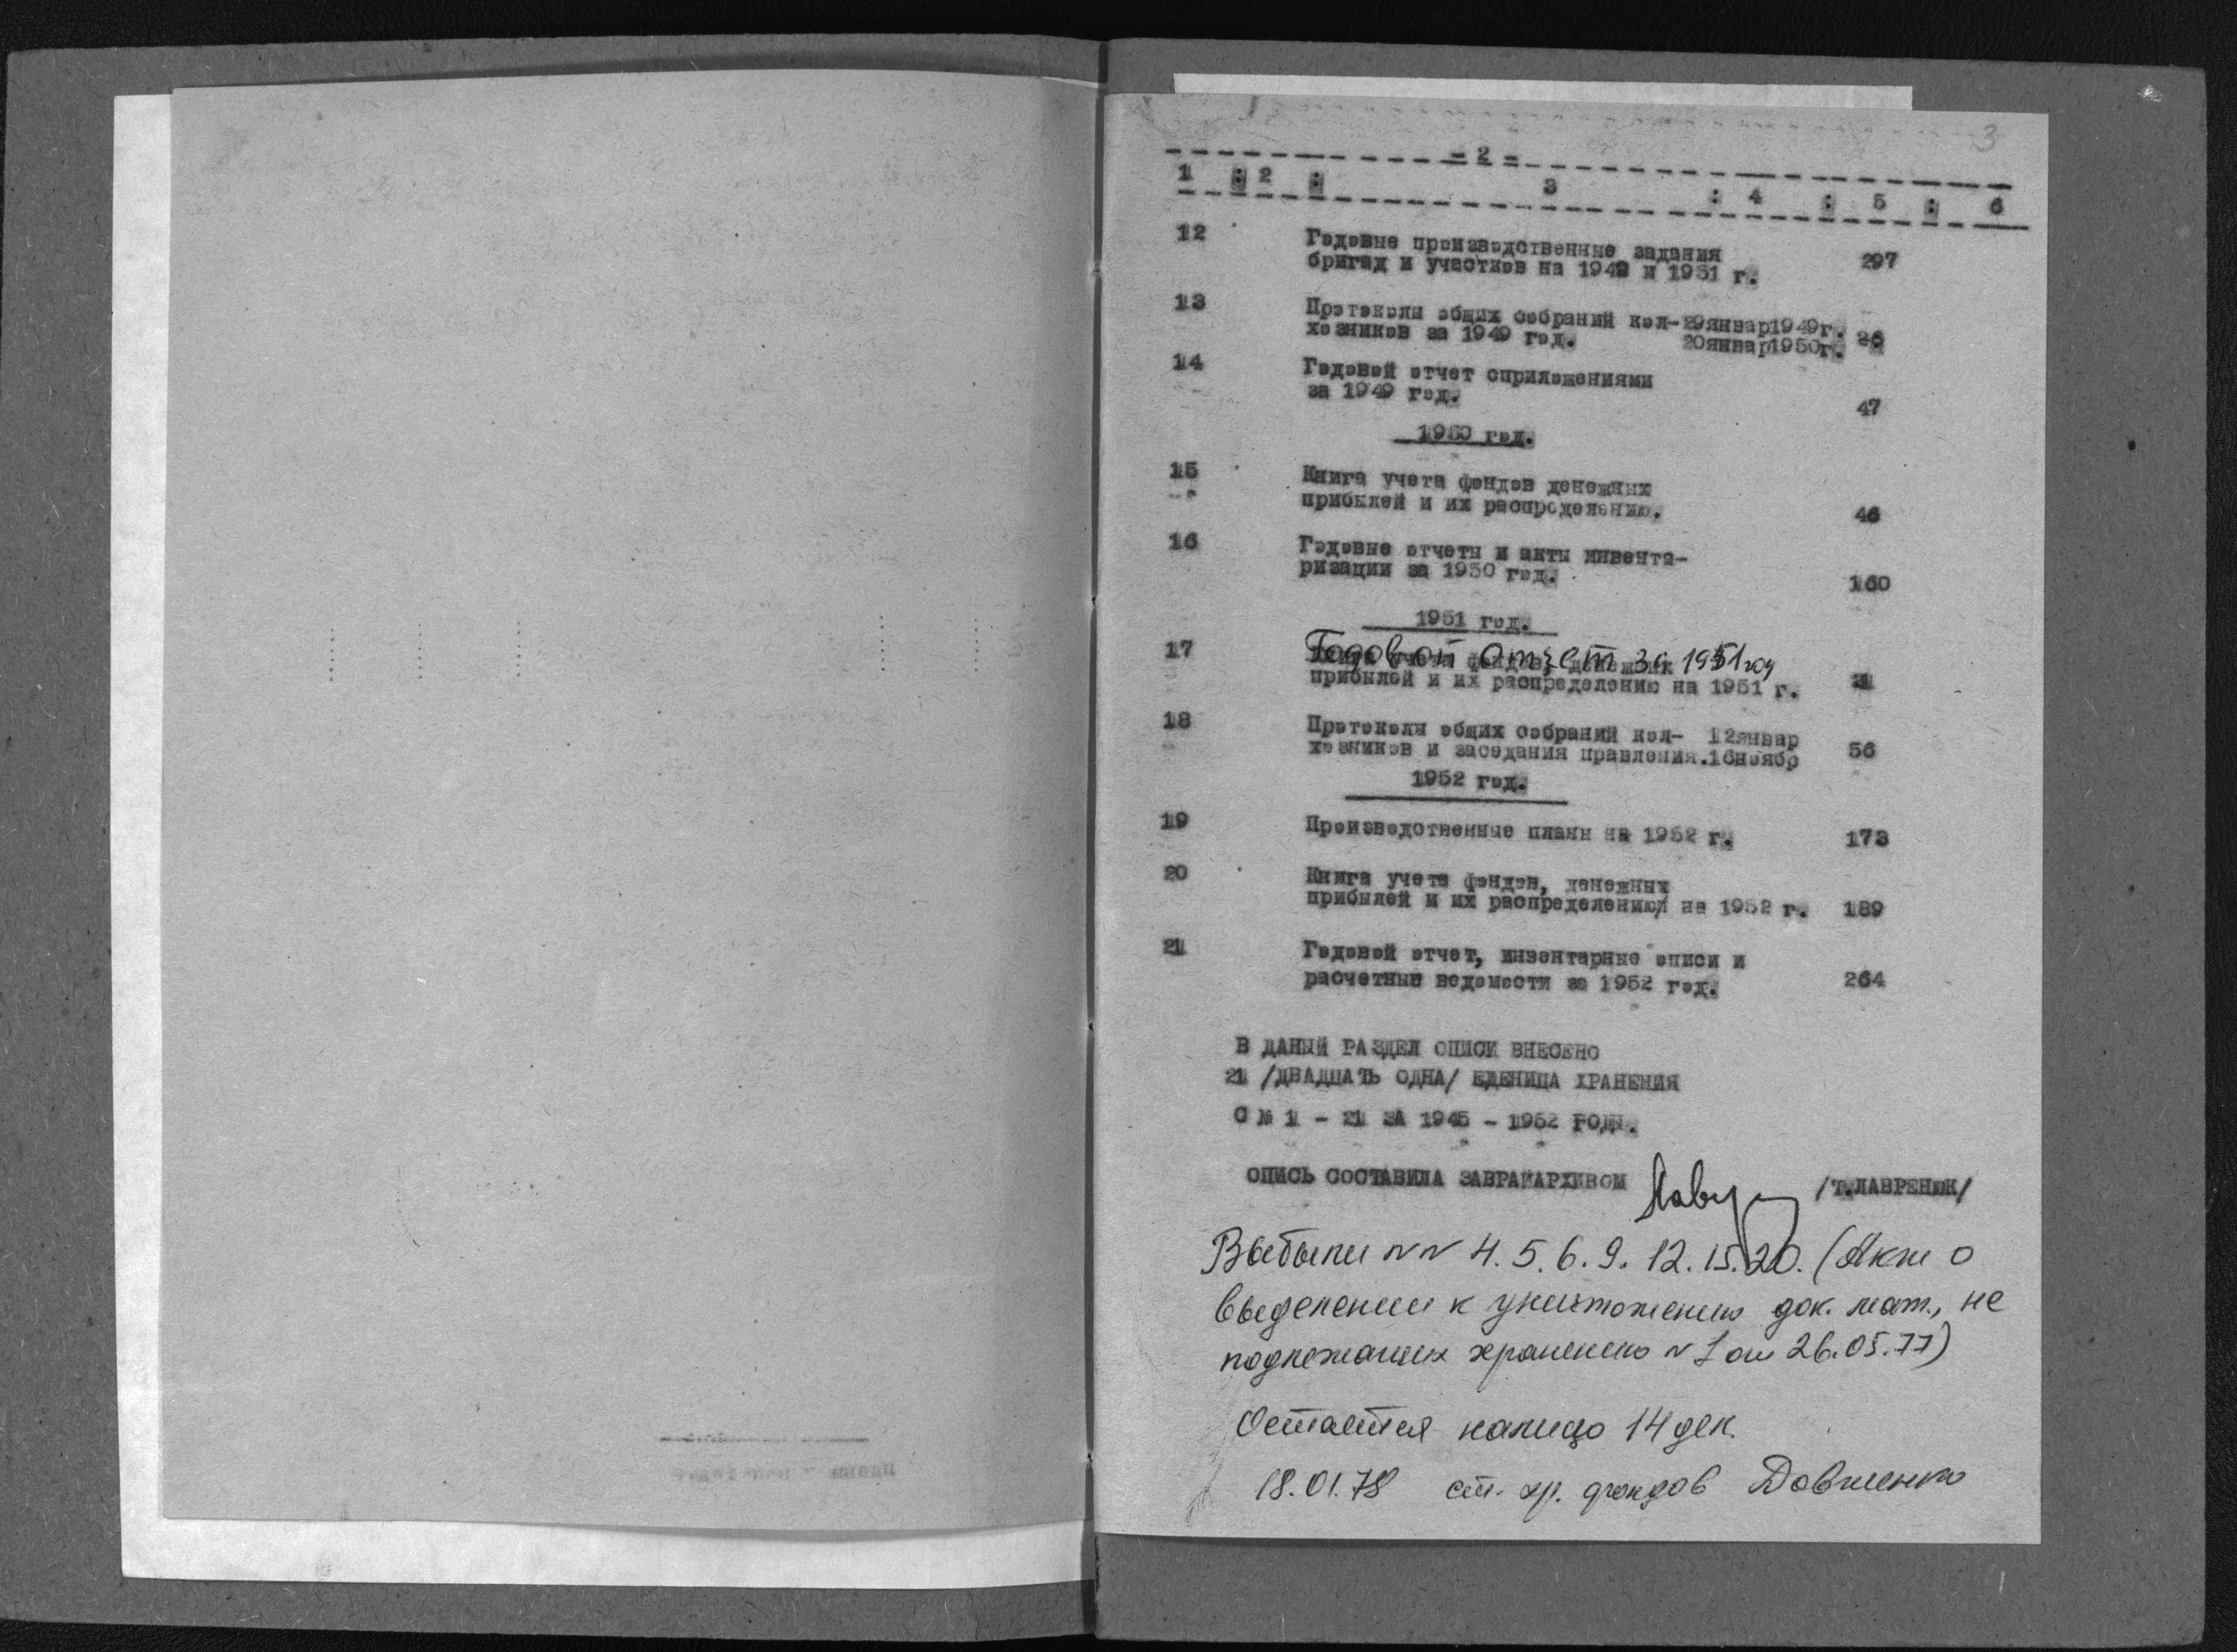 3
- 2 -
1 : 2 : 3 : 4 : 5 : 6
12 Годовые производственные задания
бригад и участков на 1949 и 1951 г. 297
13 Протоколы общих собраний кол- 29январ1949г.
хозников за 1949 год. 20январ1950г. 26
14 Годовой отчет сприложениями
за 1949 год. 47
1950 год.
15 Книга учета фондов денежных
прибылей и их распределению. 46
16 Годовые отчеты и акты инвента-
ризации за 1950 год. 160
1951 год.
17 Годовой отчет за 1951 год
прибылей и их распределению на 1951 г. 21
18 Протоколы общих собраний кол- 12январ
хозников и заседания правления.16ноябр 56
1952 год.
19 Производственные планы на 1952 г. 173
20 Книга учета фондов, денежных
прибылей и их распределению на 1952 г. 189
21 Годовой отчет, инвентарные описи и
расчетные ведомости за 1952 год. 264
В ДАНЫЙ РАЗДЕЛ ОПИСИ ВНЕСЕНО
21 /ДВАДЦАТЬ ОДНА/ ЕДЕНИЦА ХРАНЕНИЯ
С № 1 - 21 ЗА 1945 - 1952 ГОДЫ.
ОПИСЬ СОСТАВИЛА ЗАВРАЙАРХИВОМ /Т.ЛАВРЕНЮК/
Выбыли NN 4. 5. 6. 9. 12. 15. 20. (Акт о
выделении к уничтожению док. мат., не
подлежащих хранению N 1 от 26.05.77)
Остается налицо 14 дел.
18.01.78 ст. хр. фондов Довженко